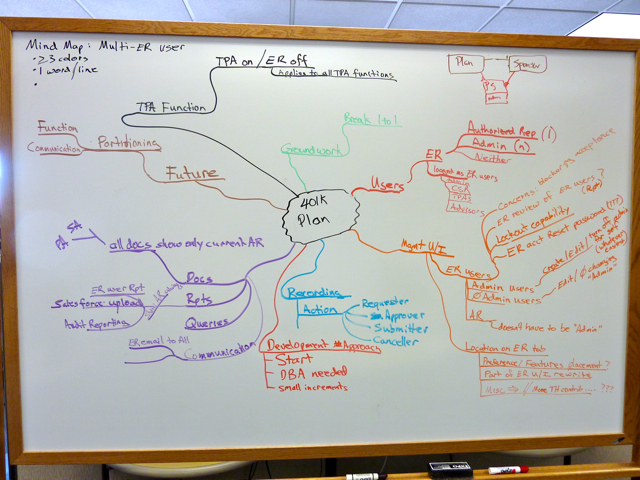 Mind Map: Multi-ER user
• 23 colors
• 1 word/line
•
TPA on/ER off
Applies to all TPA functions
TPA Function
Plan
Sponsor
PS
Break 1 to 1
Groundwork
Function
Communication
Partitioning
Future
401k
Plan
Users
ER
Authorized Rep (1)
Admin (n)
Neither
ER users
CSA
TPAs
Advisors
Mgmt U/I
ER users
ER review of ER users?
(Rpt)
Lockout capability
ER acct Reset password (TP)
Admin users
Create/Edit/
Ø Admin users
Edit/Ø changing
"Admin"
AR
doesn't have to be "Admin"
Location on ER tab
Preference/Features placement?
Part of ER U/I rewrite
SA
PA
all docs show only current AR
Docs
ER user Rpt
Salesforce upload
Audit Reporting
Rpts
Queries
ER email to All
Communication
Recording
Action
Requester
Approver
Submitter
Canceller
Development Approach
Start
DBA needed
small increments